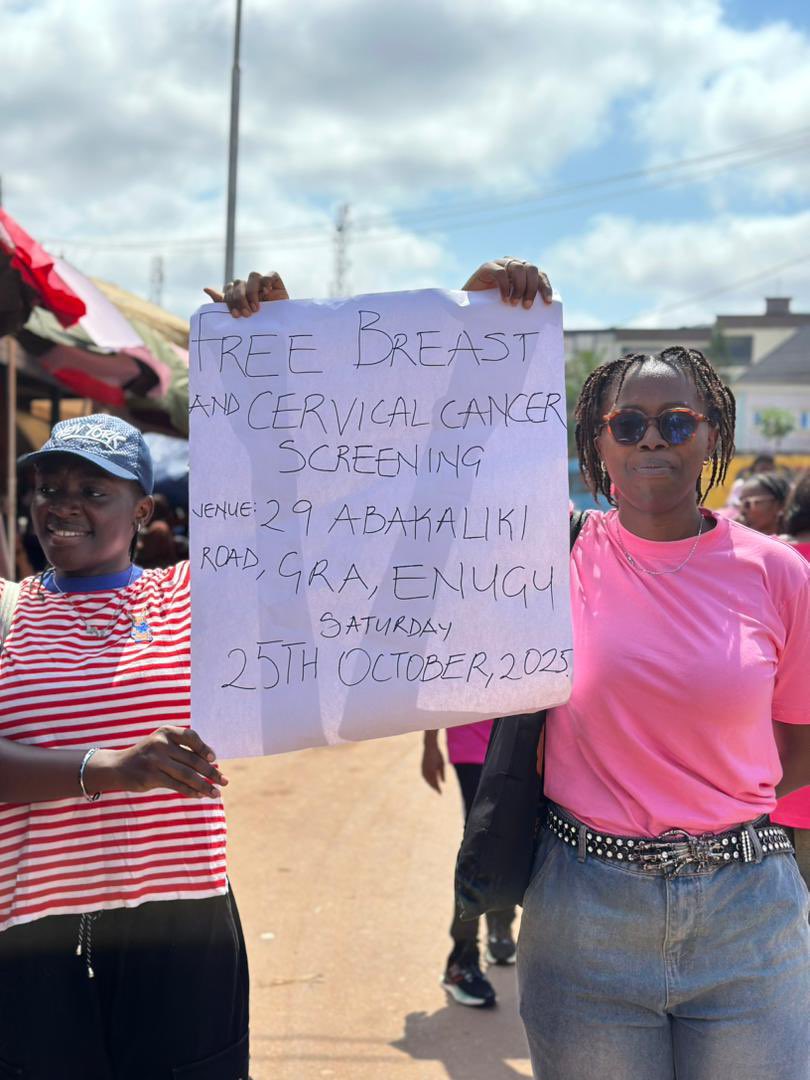 FREE BREAST
AND CERVICAL CANCER
SCREENING
VENUE: 29 ABAKALIKI
ROAD, GRA, ENUGU
SATURDAY
25TH OCTOBER, 2025.